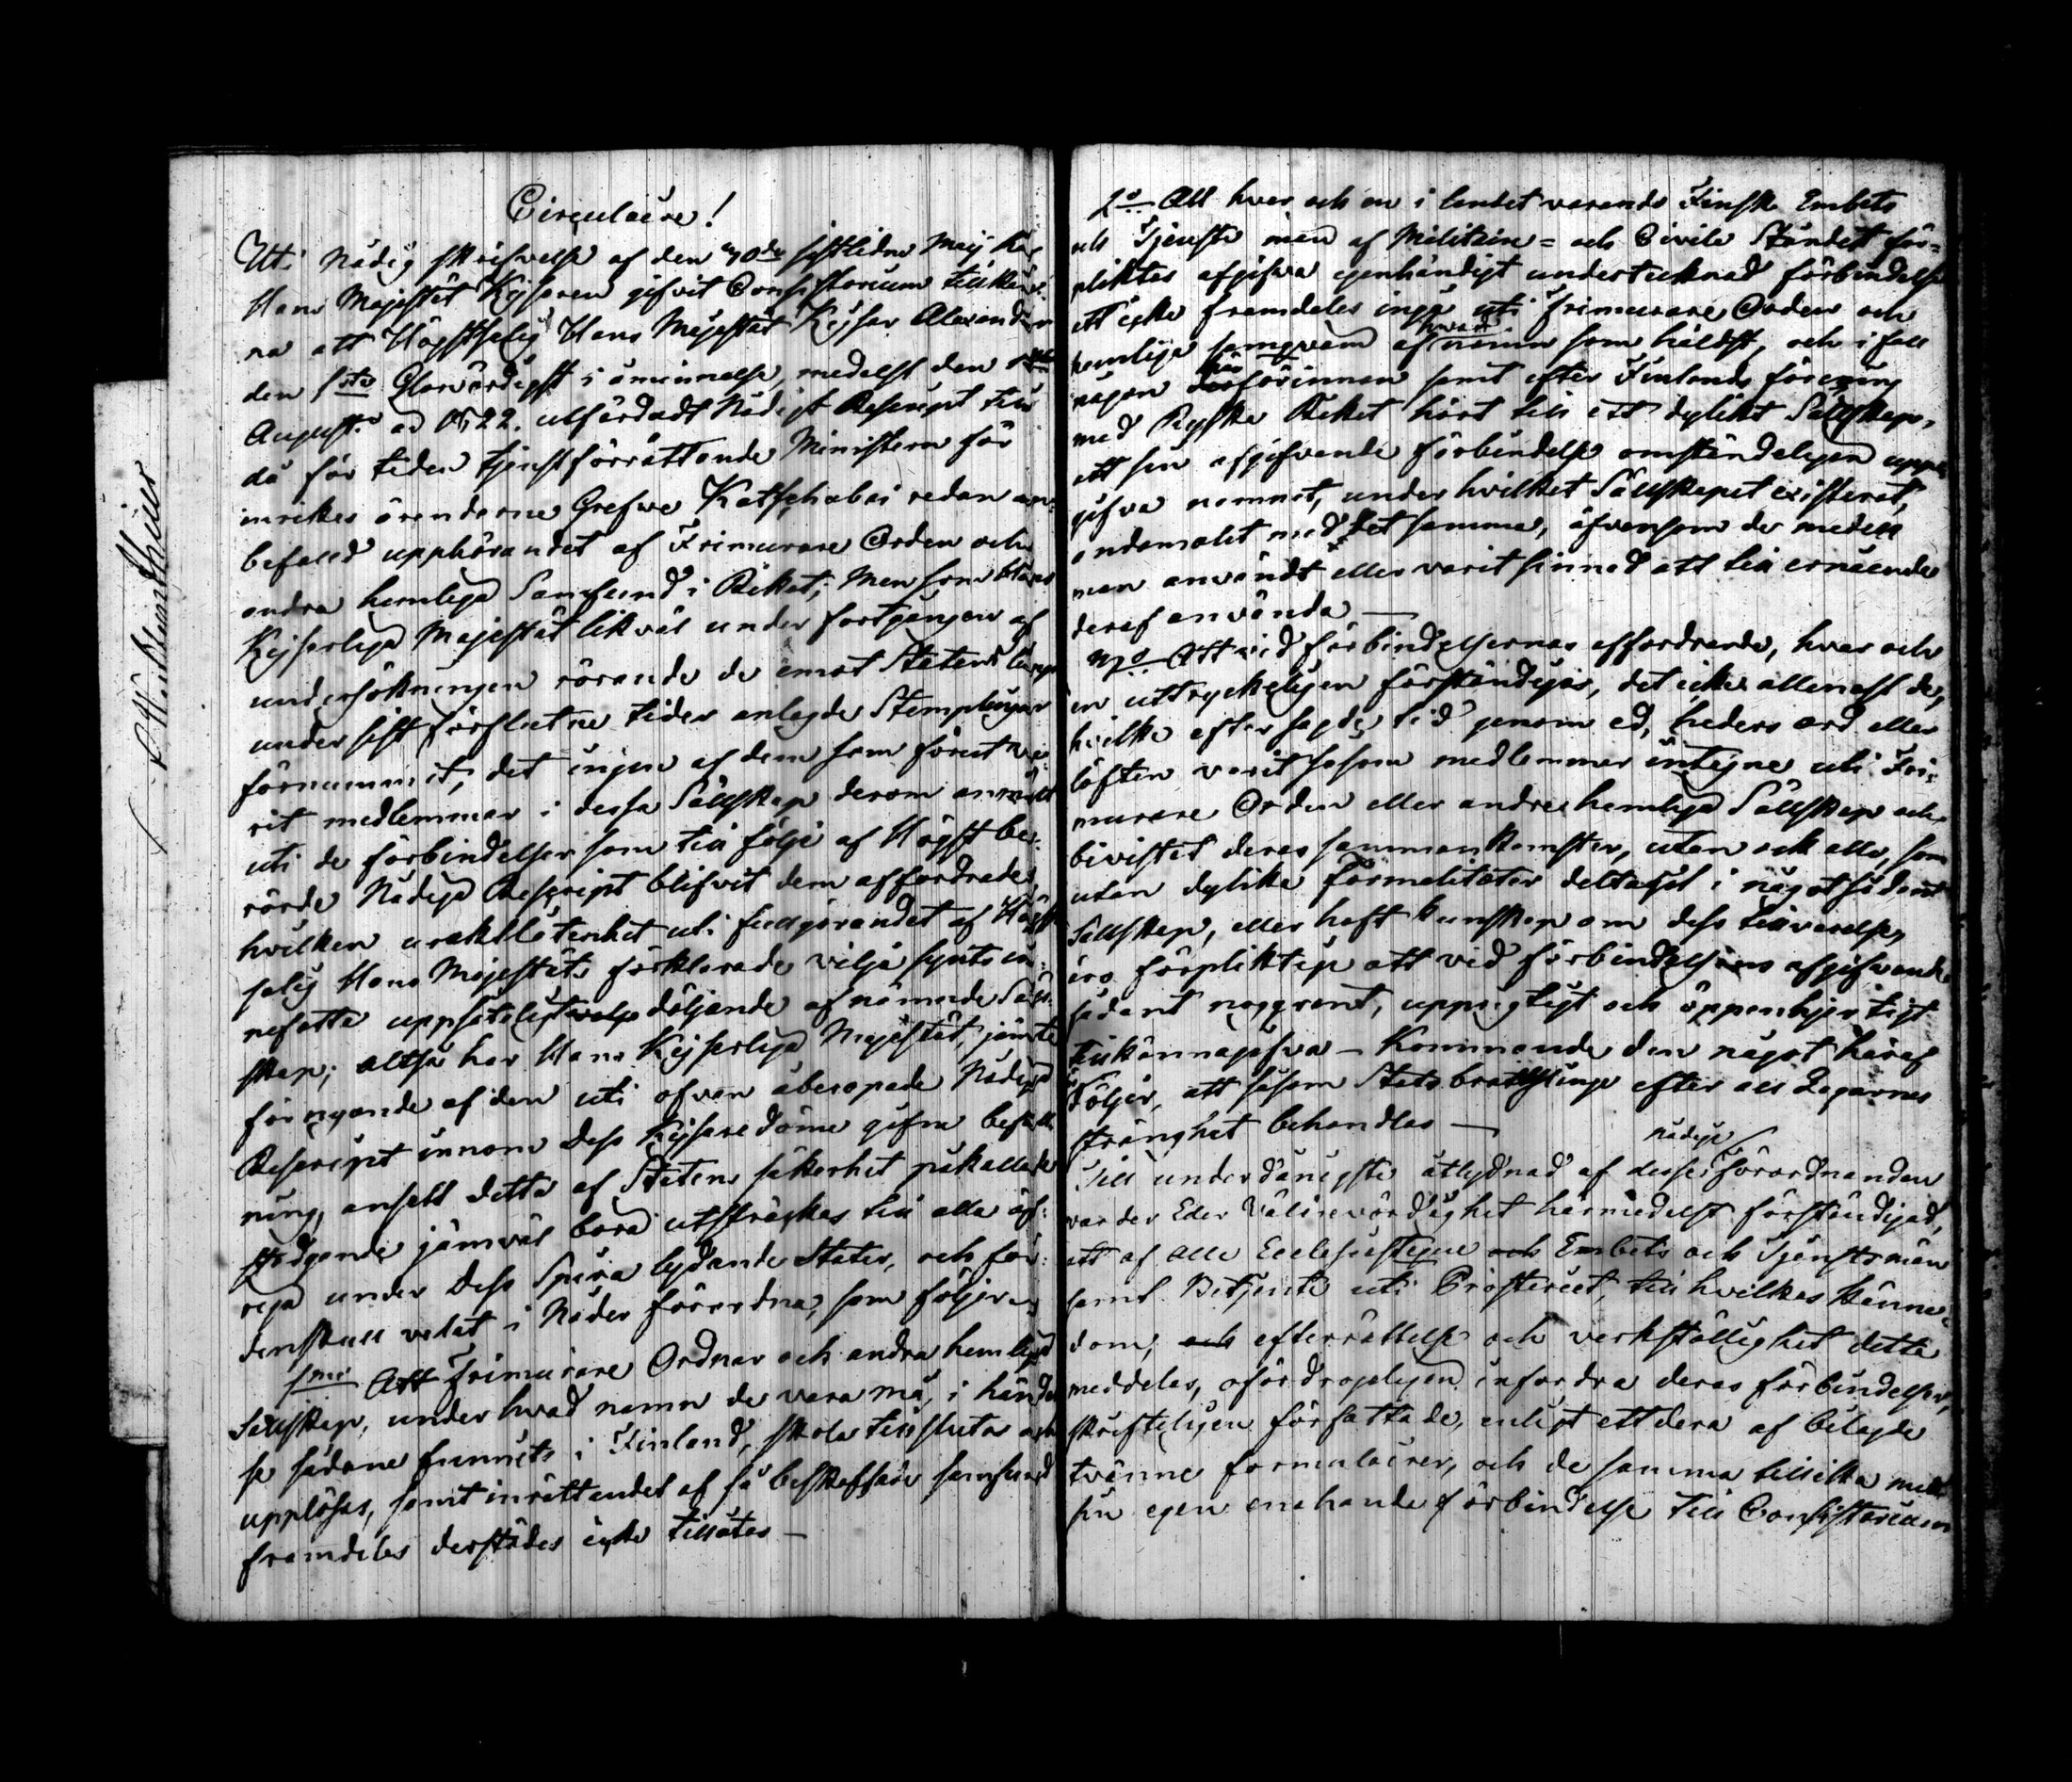 Circulaire!
Uti Nådig skrifvelse af den 30de sistledne Maij har
Hans Majestät Kejsaren gifvit Consistorium tillkän-
na att Högstsalig Hans Majestät Kejsar Alexander
den 1sta Glorvördigst i åminnelse, medelst den
August. ad 1822. utfärdadt Nådigt Rescript till
då för tiden tjenstförrättande Ministern för
inrikes ärenderne Grefve Kotschubei redan an-
befalld upphörandet af Frimurare Orden och
andra hemliga Samfund i Riket; Men som Hans
Kejserliga Majestät likväl under fortgången af
undersökningen rörande de emot Statens
under sist förflutne tider anlagde Stemplingar
förnummit, det ingen af dem som förut va-
rit medlemmar i dessa Sällskap derom anmält
uti de förbindelser som till följe af Högstbe-
rörde Nådiga Rescript blifvit dem affordrade
hvilken uraktlåtenhet uti fullgörandet af Högst
salig Hans Majestäts förklarade vilja synts in-
nefatta uppsåteligt döljande af nämnde Säll-
skap; altså har Hans Kejserliga Majestät, jämte
förnyande af den uti ofvan åberopade Nådiga
Rescript innom Dess Kejsaredöme gifna befall-
ning, ansett detta af Statens säkerhet påkallade
stadgande jämväl böra utsträckas till alla öf-
riga under Dess Spira lydande Stater, och för
denskull velat i Nåder förordna, som följer
1mo Att Frimurare Ordnar och andra hemliga
Sällskap, under hvad namn de vara må, i händel-
se sådane funnits i Finland, skola tillslutas och
upplösas, samt inrättandet af så beskaffade samfund
framdeles derstädes icke tillåtas —
2o Att hvar och en i landet varande Finsk Embets
och Tjenste män af Militaire- och Civile Ståndet för-
pliktas afgifva egenhändigt undertecknad förbindelse
att icke framdeles ingå uti Frimurare Orden och
hemliga samqväm af hvad namn som häldst, och i fall
någon härförinnan samt efter Finlands förening
med Ryska Riket hört till ett dylikt Sällskap,
att sin afgifvande förbindelse omständeligen upp-
gifva namnet, under hvilket Sällskapet existerat,
ändamålet med det samma, äfvensom de medell
man användt eller varit sinnad att till ernående
deraf använda —
3o Att vid förbindelsernas affordrande, hvar och
en uttryckeligen förständigas, det icke allenast de,
hvilka efter sagde tid genom ed, heders ord eller
löften varit såsom medlemmar intagne uti Fri-
murare Orden eller andra hemliga Sällskap och
bivistat deras sammankomster, utan ock alla, som
utan dylika formaliteter deltagit i något sådant
Sällskap, eller haft kunskap om dess tillvarelse,
äro förpliktige att vid förbindelsens afgifvande
sådant noggrant, uppriktigt och öppenhjertigt
tillkännagifva — Kommande den något häraf
döljer, att såsom Statsbrottsling efter all Lagarnes
stränghet behandlas —
Till underdånigste åtlydnad af desse nådige förordnanden
varder Eder Välärevördighet härmedelst förständigad,
att af alla Ecclesiastique Embets och Tjenstemän
samt Betjente uti Prosteriet, till hvilkas känne-
dom, efterrättelse och verkställighet detta
meddelas, ofördrögeligen infordra deras förbindelser,
skrifteligen författade, enligt ettdera af bilagde
tvänne formulairer, och de samma tillika med
sin egen enahanda förbindelse till Consistorium